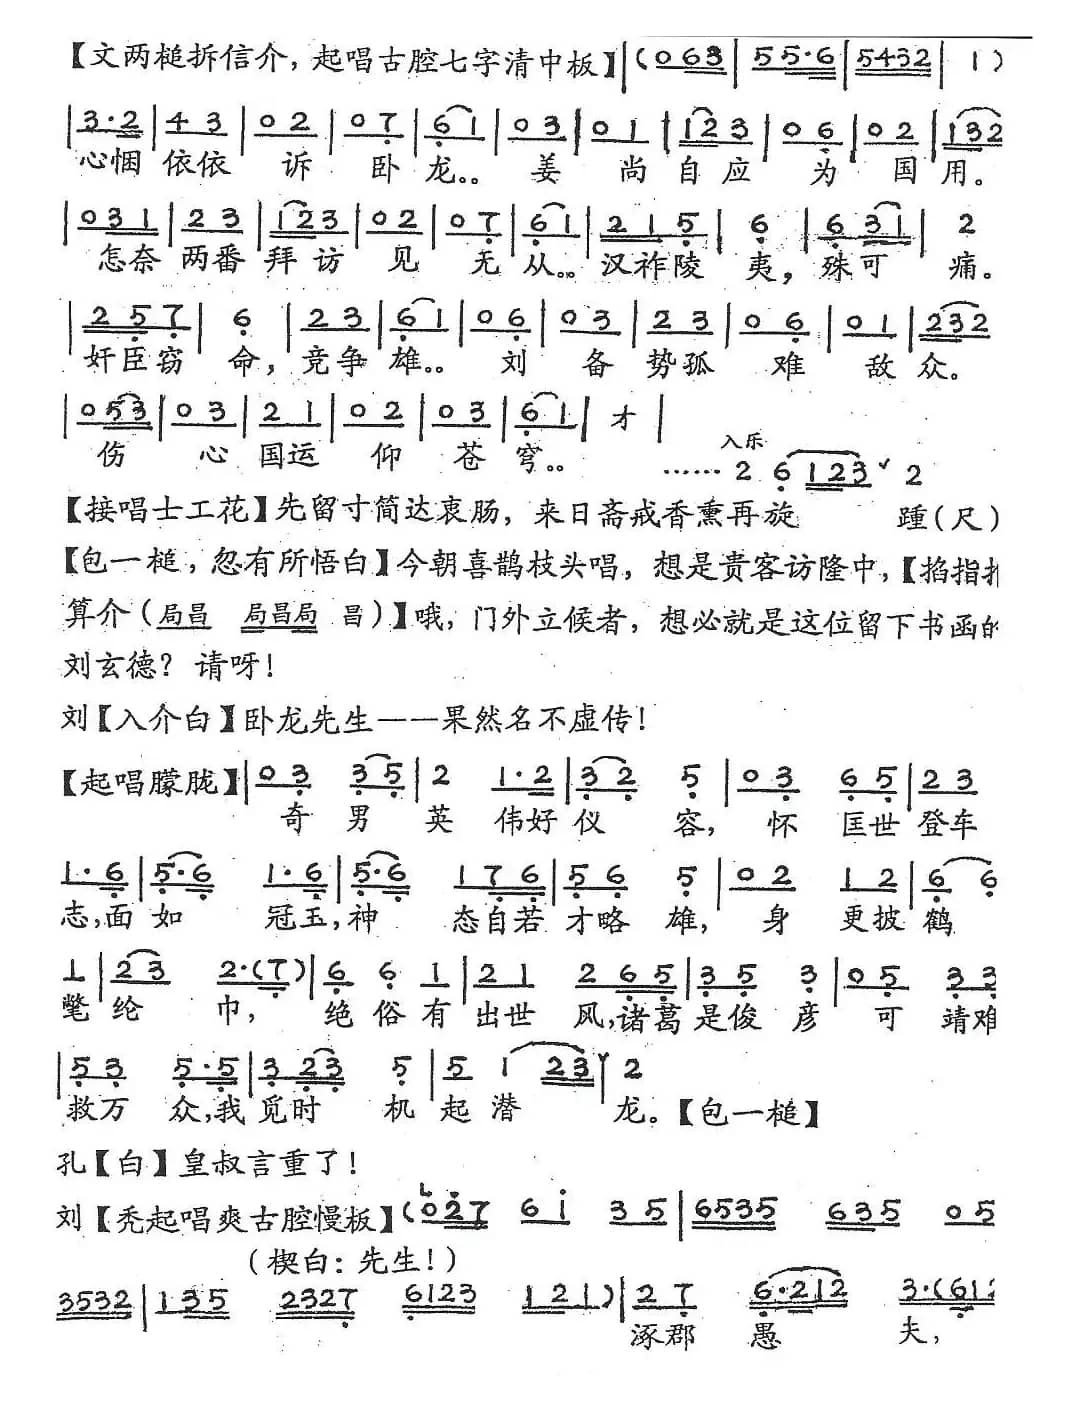 【文两槌拆信介，起唱古腔七字清中板】|(0 6 3 | 5 5·6 | 5432 | 1 )
| 3·2 | 4 3 | 0 2 | 0 7 | 6 1 | 0 3 | 0 1 | 1 2 3 | 0 6 | 0 2 | 1 3 2
心悃 依依 诉 卧 龙。。 姜 尚 自 应 为 国 用。
| 0 3 1 | 2 3 | 1 2 3 | 0 2 | 0 7 | 6 1 | 2 1 5 | 6 | 6 3 1 | 2
怎奈 两番 拜 访 见 无 从。。 汉祚陵 夷，殊可 痛。
| 2 5 7 | 6 | 2 3 | 6 1 | 0 6 | 0 3 | 2 3 | 0 6 | 0 1 | 2 3 2
奸臣窃 命，竞争 雄。。 刘 备 势孤 难 敌 众。
| 0 5 3 | 0 3 | 2 1 | 0 2 | 0 3 | 6 1 | 才 |
伤 心 国运 仰 苍 穹。。
入乐
…… 2 6 1 2 3 ˇ 2
【接唱士工花】先留寸简达衷肠，来日斋戒香熏再旋 踵(尺)
【包一槌，忽有所悟白】今朝喜鹊枝头唱，想是贵客访隆中，【掐指
算介(局昌 局昌局 昌)】哦，门外立候者，想必就是这位留下书函的
刘玄德？请呀！
刘【入介白】卧龙先生——果然名不虚传！
【起唱朦胧】| 0 3 3 5 | 2 1·2 | 3 2 5 | 0 3 6 5 | 2 3
奇 男 英 伟好 仪 容，怀 匡世 登车
1·6 | 5·6 1·6 | 5·6 1 7 6 | 5 6 5 | 0 2 1 2 | 6 6
志，面 如 冠玉，神 态自若 才略 雄，身 更披 鹤
1 | 2 3 2·(7) | 6 6 1 | 2 1 2 6 5 | 3 5 3 | 0 5 3 3
氅 纶 巾，绝 俗 有 出世 风，诸葛 是俊 彦 可 靖难
| 5 3 5·5 | 3 2 3 5 | 5 1 2 3 ˇ 2
救万 众，我 觅时 机 起 潜 龙。【包一槌】
孔【白】皇叔言重了！
刘【秃起唱爽古腔慢板】(0 2 7 6 i 3 5 | 6535 6 3 5 0 5
(楔白：先生！)
3532 | 1 3 5 2327 6123 1 2 1) | 2 7 6·2 1 2 3·(6 1 2
涿郡 愚 夫，